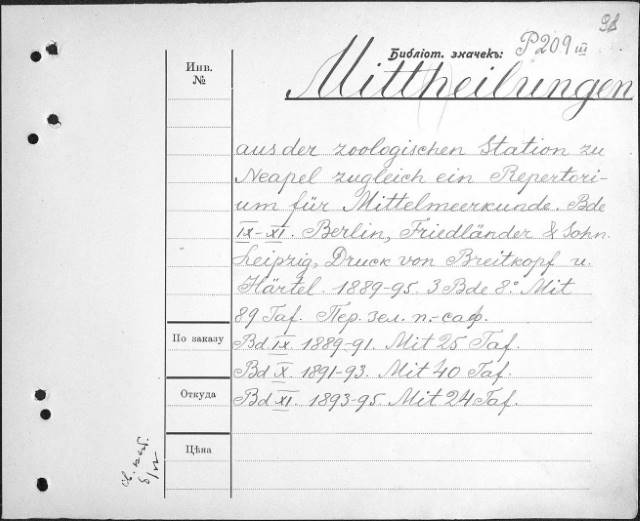 Библіот. значекъ: P 209 III
Инв.
№
Mittheilungen
aus der zoologischen Station zu
Neapel zugleich ein Repertori-
um für Mittelmeerkunde. Bde
IX-XI. Berlin, Friedländer & Sohn.
Leipzig, Druck von Breitkopf u.
Härtel. 1889-95. 3 Bde 8° Mit
89 Taf. Пер. зел. п.-саф.
По заказу
Bd IX 1889-91. Mit 25 Taf.
Bd X. 1891-93. Mit 40 Taf.
Откуда
Bd XI. 1893-95. Mit 24 Taf.
Цѣна